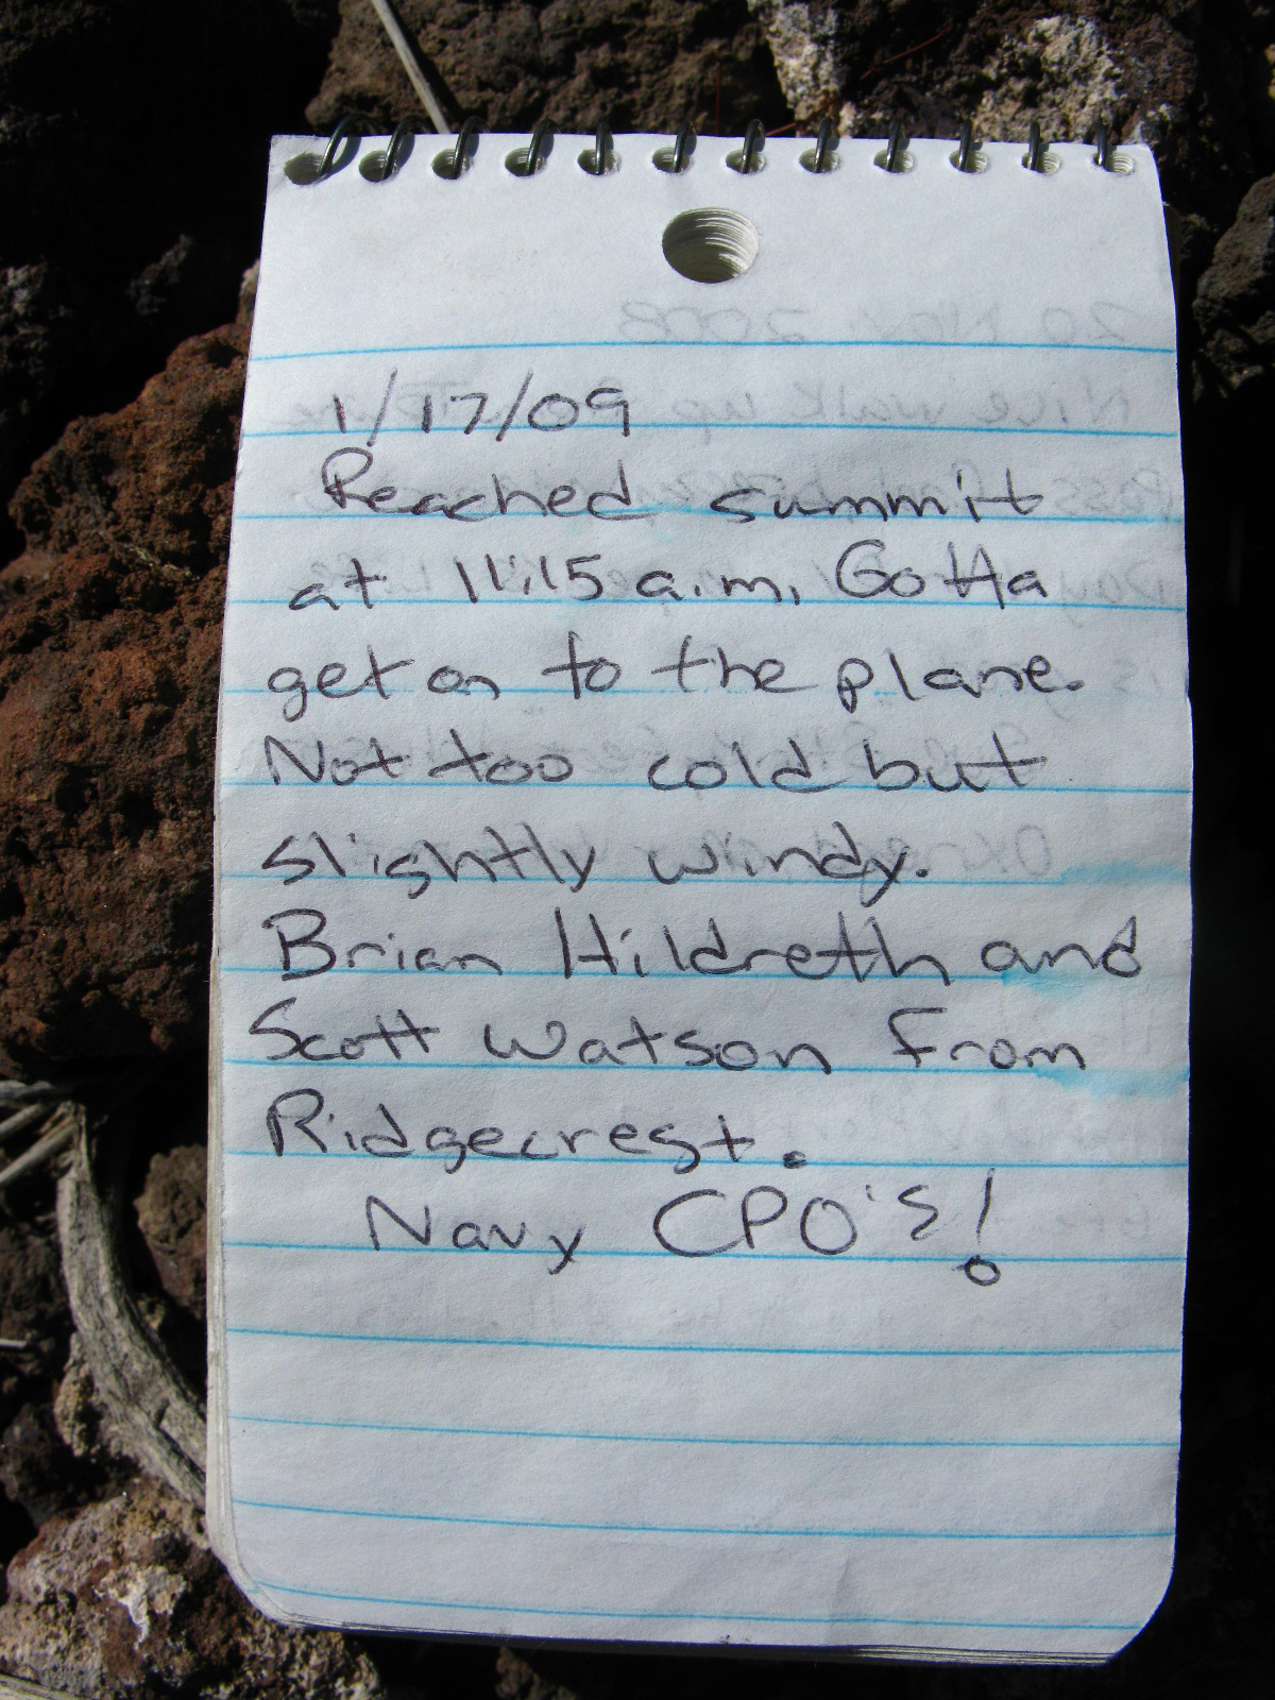 1/17/09
Reached summit
at 11:15 a.m. Gotta
get on to the plane.
Not too cold but
slightly windy.
Brian Hildreth and
Scott Watson from
Ridgecrest.
Navy CPO's!